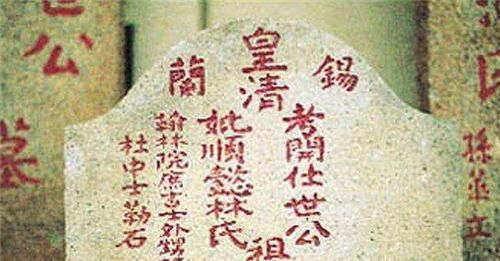 孫並立
錫蘭
皇清
考開仕世公
妣順懿林氏
祖
翰林院庶吉士外甥
杜中士勒石
世公
墓